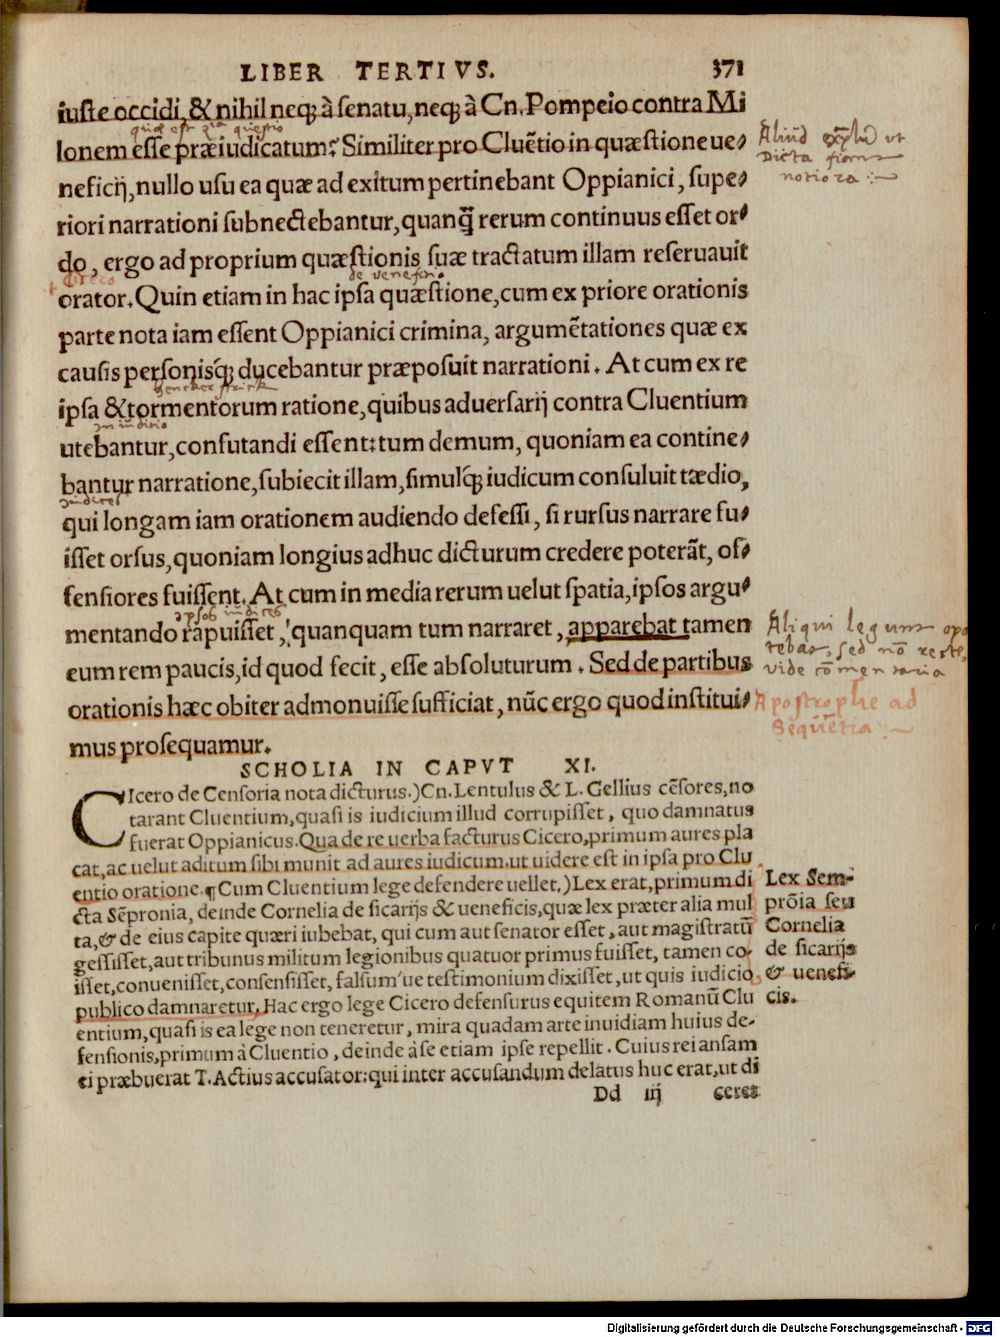 LIBER TERTIVS. 371
iuste occidi, & nihil neq; à senatu, neq; à Cn. Pompeio contra Mi
lonem esse præiudicatum? Similiter pro Cluẽtio in quæstione ue-
neficij, nullo usu ea quæ ad exitum pertinebant Oppianici, supe-
riori narrationi subnectebantur, quanq̃ rerum continuus esset or-
do, ergo ad proprium quæstionis suæ tractatum illam reseruauit
de veneficio
orator. Quin etiam in hac ipsa quæstione, cum ex priore orationis
parte nota iam essent Oppianici crimina, argumẽtationes quæ ex
causis personisq́; ducebantur præposuit narrationi. At cum ex re
ipsa & tormentorum ratione, quibus aduersarij contra Cluentium
utebantur, confutandi essent: tum demum, quoniam ea contine-
bantur narratione, subiecit illam, simulq́; iudicum consuluit tædio,
iudices
qui longam iam orationem audiendo defessi, si rursus narrare fu-
isset orsus, quoniam longius adhuc dicturum credere poterãt, of-
fensiores fuissent. At cum in media rerum uelut spatia, ipsos argu-
ipsos iudices
mentando rapuisset, quanquam tum narraret, apparebat tamen
eum rem paucis, id quod fecit, esse absoluturum. Sed de partibus
orationis hæc obiter admonuisse sufficiat, nũc ergo quod institui-
mus prosequamur.
Aliud exp̃lũ ut
Dicta fiant
notiora :~
Aliqui legunt opo
tebat, sed nõ recte,
vide cõmentaria
Apostrophe ad
Sequẽtia :~
SCHOLIA IN CAPVT XI.
CIcero de Censoria nota dicturus.) Cn. Lentulus & L. Gellius cẽsores, no
tarant Cluentium, quasi is iudicium illud corrupisset, quo damnatus
fuerat Oppianicus. Qua de re uerba facturus Cicero, primum aures pla
cat, ac uelut aditum sibi munit ad aures iudicum. ut uidere est in ipsa pro Clu
entio oratione. ¶ Cum Cluentium lege defendere uellet.) Lex erat, primum di
cta Sẽpronia, deinde Cornelia de sicarijs & ueneficis, quæ lex præter alia mul
ta, & de eius capite quæri iubebat, qui cum aut senator esset, aut magistratũ
gessisset, aut tribunus militum legionibus quatuor primus fuisset, tamen co-
isset, conuenisset, consensisset, falsum'ue testimonium dixisset, ut quis iudicio
publico damnaretur. Hac ergo lege Cicero defensurus equitem Romanũ Clu
entium, quasi is ea lege non teneretur, mira quadam arte inuidiam huius de-
fensionis, primum à Cluentio, deinde à se etiam ipse repellit. Cuius rei ansam
ei præbuerat T. Actius accusator: qui inter accusandum delatus huc erat, ut di
Lex Sem-
prõia seu
Cornelia
de sicarijs
& uenefi-
cis.
Dd iij ceret
Digitalisierung gefördert durch die Deutsche Forschungsgemeinschaft - DFG